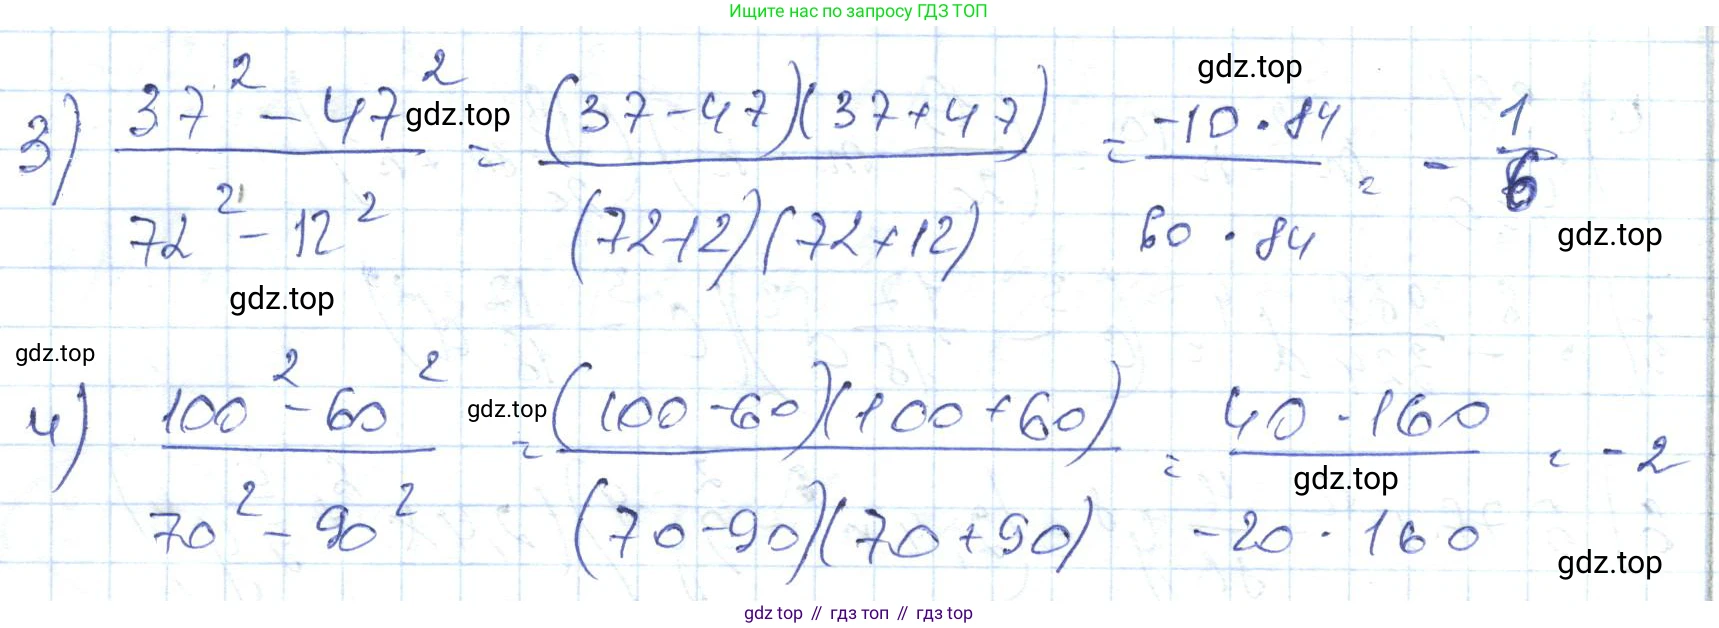 Ищите нас по запросу ГДЗ ТОП
3) (37² - 47²)/(72² - 12²) = ((37-47)(37+47))/((72-12)(72+12)) = (-10 · 84)/(60 · 84) = - 1/6
gdz.top
gdz.top
gdz.top
gdz.top
gdz.top
4) (100² - 60²)/(70² - 90²) = ((100-60)(100+60))/((70-90)(70+90)) = (40 · 160)/(-20 · 160) = -2
gdz.top
gdz.top
gdz.top
gdz top // гдз топ // гдз top